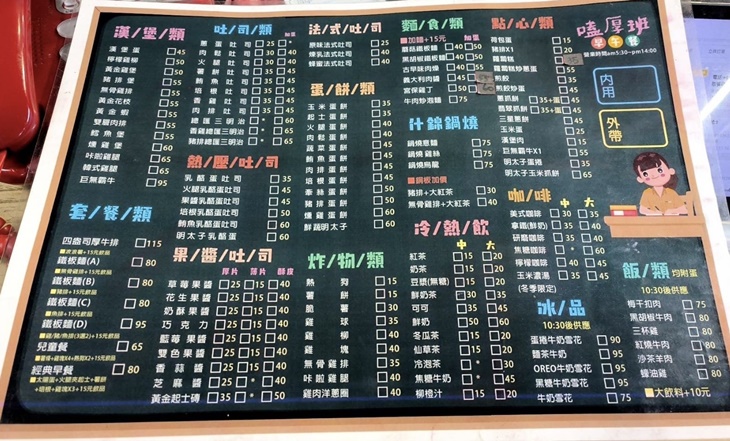 漢/堡/類
漢堡蛋 45
檸檬雞柳 50
黃金雞堡 50
豬排堡 55
無骨雞排 55
黃金花枝 55
黃金蝦 55
雙層肉排 55
鱈魚堡 55
燻雞堡 55
咔啦雞腿 65
韓式雞腿 65
巨無霸牛 95
套/餐/類
四盎司厚牛排 115
鐵板麵(A) 80
■無骨雞排+15元飲品
鐵板麵(B) 80
■豬排+15元飲品
鐵板麵(C) 80
■魚排+15元飲品
鐵板麵(D) 95
兒童餐 65
經典早餐 80
■太陽蛋+火腿夾起士+薯餅
+培根+雞塊X3+15元飲品
吐/司/類
加蛋
蔥蛋吐司 25 *
火腿吐司
薯餅吐司
鮪魚吐司
培根吐司
香雞吐司
肉排吐司
總匯三明治 * 60
香雞總匯三明治 * 65
豬排總匯三明治 * 65
熱/壓/吐/司
乳酪蛋吐司 35
火腿乳酪吐司
果醬乳酪吐司 45
培根乳酪蛋吐司 50
鮪魚乳酪蛋吐司 60
明太子乳酪蛋 60
果/醬/吐/司
厚片 薄片 酥皮
草莓果醬 25 15 40
花生果醬 25 15 40
奶酥果醬 25 15 40
巧克力 25 15 40
藍莓果醬 25 15 40
雙色果醬 25 20 40
香蒜醬 25 15 40
芝麻醬 25 * 40
黃金起士磚 35 25 50
法/式/吐/司
加蛋
原味法式吐司
煉乳法式吐司
蜂蜜法式吐司
蛋/餅/類
玉米蛋餅 35
起士蛋餅
火腿蛋餅
肉鬆蛋餅 40
蔬菜蛋餅
鮪魚蛋餅
肉排蛋餅
培根蛋餅
薯絲蛋餅
豬排蛋餅
燻雞蛋餅 60
鮮蔬明太子 60
炸/物/類
熱狗 15
薯餅 15
脆薯 35
雞球 35
雞柳 40
雞塊 40
無骨雞排 35
咔啦雞腿 40
雞肉洋蔥圈 40
麵/食/類
■加麵+15元
加蛋
蘑菇鐵板麵 40 50
黑胡椒鐵板麵 40 50
古早味肉燥 40 55
義大利肉醬 45
宮保雞丁 50
牛肉炒泡麵 75
什錦鍋燒
鍋燒意麵 75
鍋燒雞絲 75
鍋燒烏龍 75
■鍋板加價
豬排+大紅茶 30
無骨雞排+大紅茶 40
冷/熱/飲
中 大
紅茶 15 20
奶茶 15 20
豆漿(無糖) 15 20
鮮奶茶 30
可可 35 45
鮮奶 50 60
冬瓜茶 15 20
仙草茶 15 20
冷泡茶 * 30
焦糖牛奶 * 35
柳橙汁 * 20
點/心/類
荷包蛋 15
豬排X1 20
蘿蔔糕
蘿蔔糕炒蛋
煎餃
煎餃炒蛋
蔥抓餅 35+蛋 45
翡翠抓餅 35+蛋 45
三星蔥餅
玉米蛋
漢堡肉
巨無霸牛X1
明太子蛋捲
明太子玉米抓餅
咖/啡
中 大
美式咖啡 30 35
拿鐵(鮮奶) 35 45
研磨咖啡
焦糖咖啡 * 60
檸檬咖啡 45
玉米濃湯 25 35
(冬季限定)
冰/品
10:30後供應
蛋捲牛奶雪花 90
麵茶牛奶 90
OREO牛奶雪花 90
焦糖牛奶雪花 90
牛奶雪花 75
嗑厚班
早午餐
營業時間am5:30~pm14:00
內用
外帶
飯/類 均附蛋
10:30後供應
梅干扣肉 75
黑胡椒牛肉 80
三杯雞 80
紅燒牛肉 80
沙茶羊肉 80
蜂油雞 80
■大飲料+10元